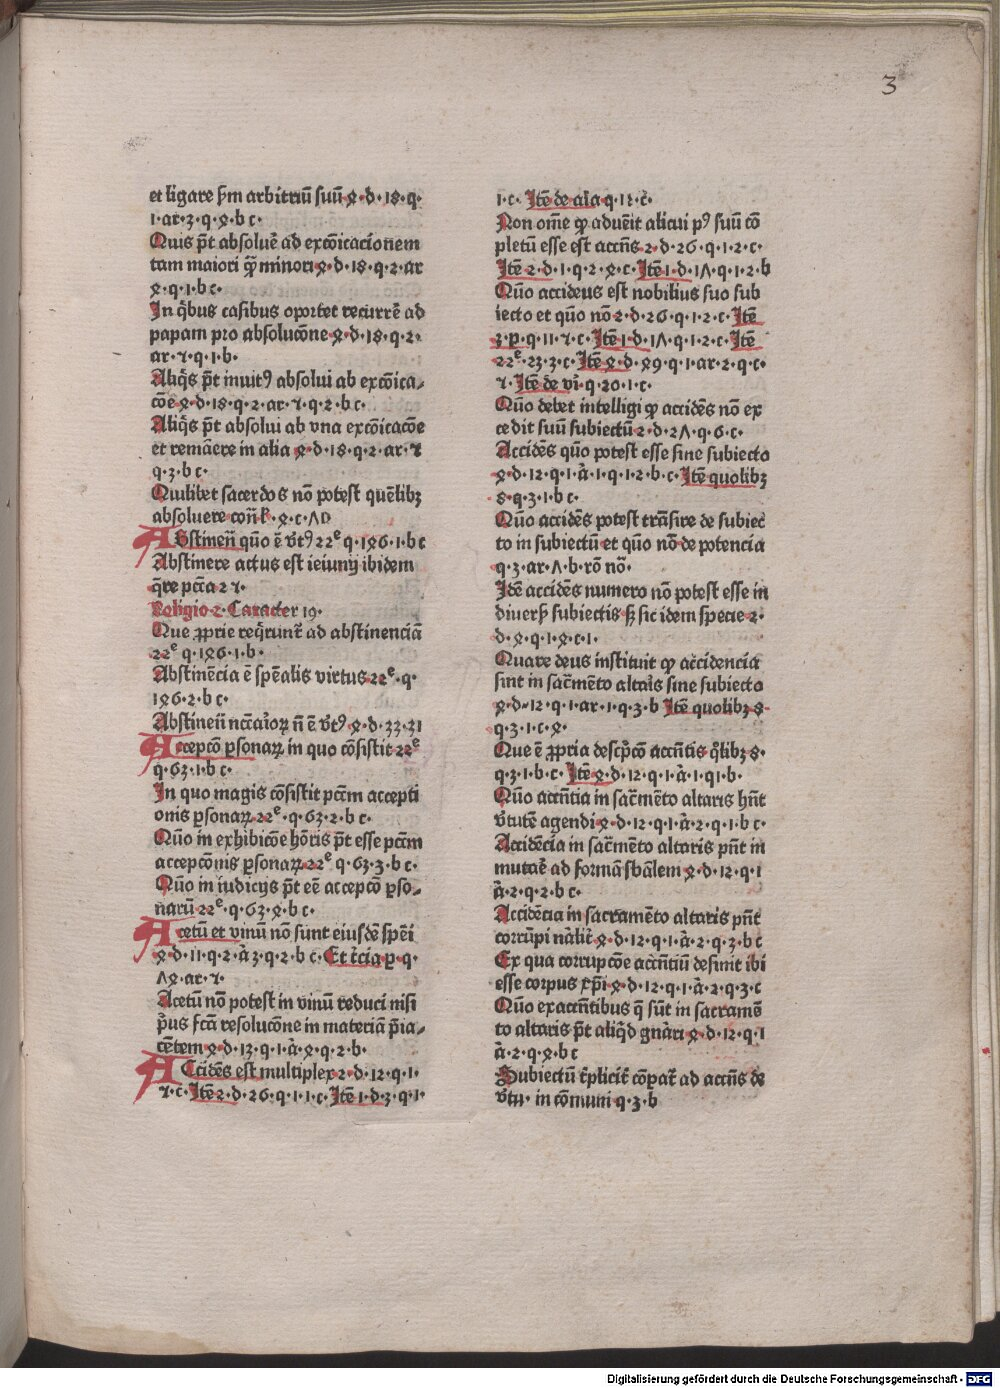 3
et ligare ẜm arbitriū suū 4·d·18·q·
1·ar·3·q·4·b c·
Quis pt̄ absoluē ad excōicacionem
tam maiori qȝ minori 4·d·18·q·2·ar
4·q·1·b c·
In qͥbus casibus oportet recurrē ad
papam pro absolucōne 4·d·18·q·2·
ar·7·q·1·b·
Aliqͥs pt̄ inuitꝰ absolui ab excōica⸗
cōe 4·d·18·q·2·ar·7·q·2·b c·
Aliqͥs pt̄ absolui ab vna excōicacōe
et remāere in alia 4·d·18·q·2·ar·7
q·3·b c·
Quilibet sacerdos nō potest quēlibꝫ
absoluere 4·c·ΛD
Abstineñ quō ē v̄tꝰ 22ᵉ q·146·1·b c
Abstinere actus est ieiunij ibidem
q̄re pctā 27·
Religio 2· Caracter 19·
Que ꝓprie reqͥrunt̄ ad abstinenciā
22ᵉ q·146·1·b·
Abstinēcia ē spēalis virtus 22ᵉ·q·
146·2·b c·
Abstineñ nctāioꝝ ñ ē v̄tꝰ 4·d·33·31
Accepcō ꝑsonaꝝ in quo cōsistit 22ᵉ
q·63·1·b c·
In quo magis cōsistit pctm̄ accepti
onis ꝑsonaꝝ 22ᵉ·q·63·2·b c·
Quō in exhibicōe hōris pt̄ esse pctm̄
accepcōnis ꝑsonaꝝ 22ᵉ q·63·3·b c·
Quō in iudicijs pt̄ eē accepcō ꝑso⸗
narū 22ᵉ·q·63·4·b c·
Acetū et vinū nō sunt eiusdē spēi
4·d·11·q·2·ȧ 3·q·2·b c· Et t̄cia p·q·
Λ4·ar·7·
Acetū nō potest in vinū reduci nisi
pͥus fctā resolucōne in materiā pͥia⸗
cētem 4·d·13·q·1·ȧ·4·q·2·b·
Accidēs est multiplex 2·d·12·q·1·
7·c· Itē 2·d·26·q·1·1·c· Itē 1·d·3·q·1·
1·c· Itē de aīa q·12·c·
Non om̄e qꝙ aduēit alicui pꝰ suū cō
pletū esse est accñs 2·d·26·q·1·2·c·
Itē 2·d·1·q·2·4·c· Itē 1·d·1Λ·q·1·2·b
Quō accidens est nobilius suo sub
iecto et quō nō 2·d·26·q·1·2·c· Itē
3·p·q·11·7·c· Itē 1·d·1Λ·q·1·2·c· Itē
22ᵉ·23·3·c· Itē 4·d·49·q·1·ar·2·q·c·
7· Itē de vi·q·20·1·c·
Quō debet intelligi qꝙ accidēs nō ex
cedit suū subiectū 2·d·2Λ·q·6·c·
Accidēs quō potest esse sine subiecto
4·d·12·q·1·ȧ·1·q·1·2·b·c· Itē quolibꝫ
8·q·3·1·b c·
Quō accidēs potest trāsire de subiec
to in subiectū et quō nō de potencia
q·3·ar·Λ·b·rō nō·
Idē accidēs numero nō potest esse in
diuerẜ subiectis sȝ sic idem specie 2·
d·4·q·1·4·c·1·
Quare deus instituit qꝙ accidencia
sint in sac̄mēto altaris sine subiecto
4·d·12·q·1·ar·1·q·3·b Itē quolibꝫ 8·
q·3·1·c·4·
Que ē ꝓpria descpͥcō accñtis qͦlibꝫ 8·
q·3·1·b·c· Itē 4·d·12·q·1·ȧ·1·q1·b·
Quō accñtia in sac̄mēto altaris hñt
v̄tutē agendi 4·d·12·q·1·ȧ·2·q·1·b c·
Accidēcia in sac̄mēto altaris pñt in
mutaē ad formā sbālem 4·d·12·q·1
ȧ·2·q·2·b c·
Accidēcia in sacramēto altaris pñt
corrūpi nālit̄ 4·d·12·q·1·ȧ·2·q·3·b c
Ex qua corrupcōe accñciū desinit ibi
esse corpus xp̄i 4·d·12·q·1·ȧ·2·q·3·c
Quō ex accñtibus q̄ sūt in sacramē
to altaris pt̄ aliqͥd gnāri 4·d·12·q·1
ȧ·2·q·4·b c
Subiectū t̄plicit̄ cōpat̄ ad accñs de
v̄tu· in cōmuni q·3·b
Digitalisierung gefördert durch die Deutsche Forschungsgemeinschaft · DFG